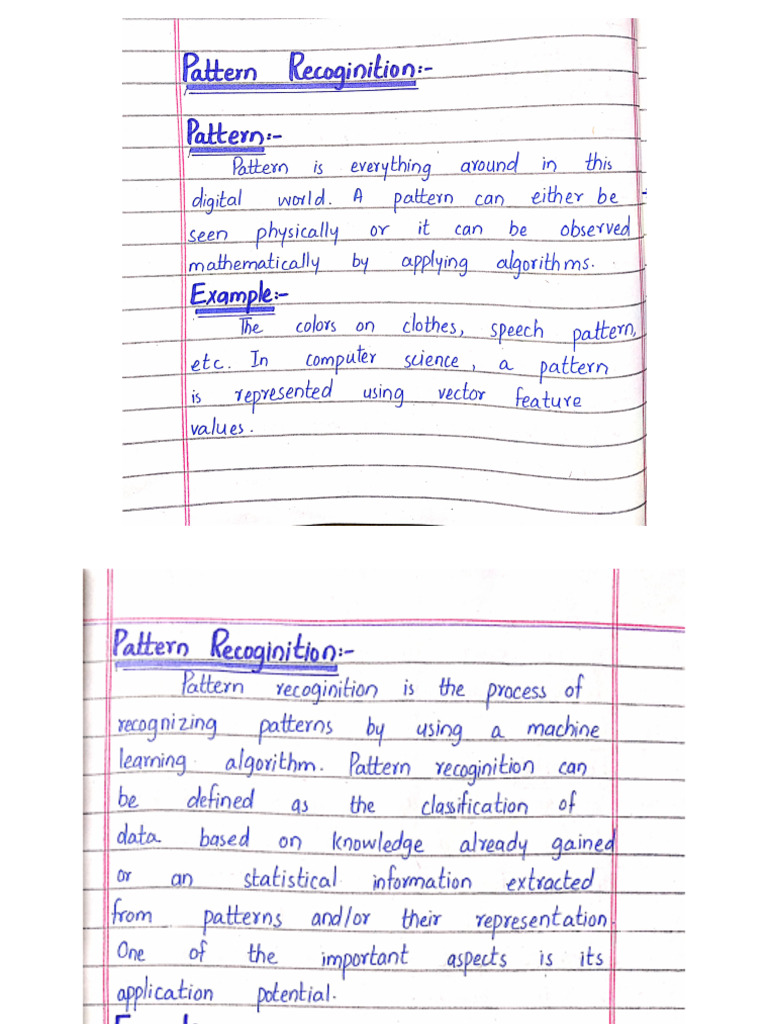 Pattern Recoginition:-
Pattern:-
Pattern is everything around in this
digital world. A pattern can either be
seen physically or it can be observed
mathematically by applying algorithms.
Example:-
The colors on clothes, speech pattern,
etc. In computer science, a pattern
is represented using vector feature
values.
Pattern Recoginition:-
Pattern recoginition is the process of
recognizing patterns by using a machine
learning algorithm. Pattern recoginition can
be defined as the classification of
data based on knowledge already gained
or an statistical information extracted
from patterns and/or their representation.
One of the important aspects is its
application potential.